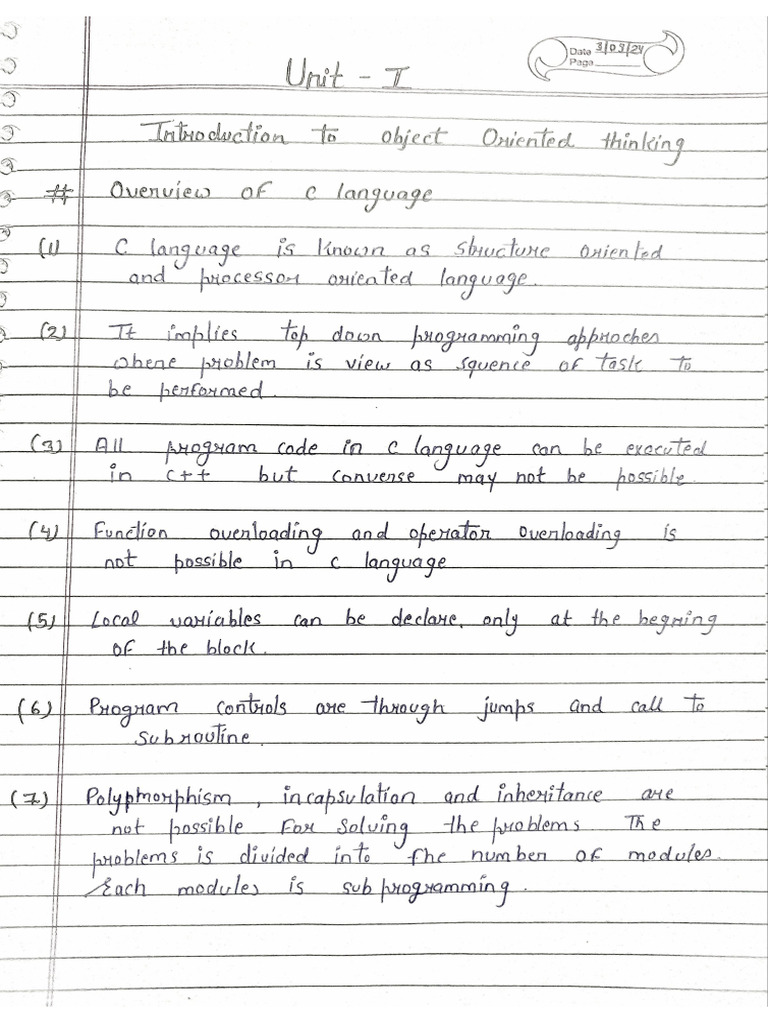 Date 3/03/24
Page
Unit - I
Introduction to object Oriented thinking
# Overview of c language
(1) C language is known as structure oriented
and processor oriented language.
(2) It implies top down programming approches
where problem is view as squence of task to
be performed.
(3) All program code in c language can be executed
in c++ but converse may not be possible
(4) Function overloading and operator overloading is
not possible in c language
(5) Local variables can be declare only at the begning
of the block.
(6) Program controls are through jumps and call to
subroutine.
(7) Polypmorphism, incapsulation and inheritance are
not possible for solving the problems The
problems is divided into the number of modules.
Each modules is sub programming.